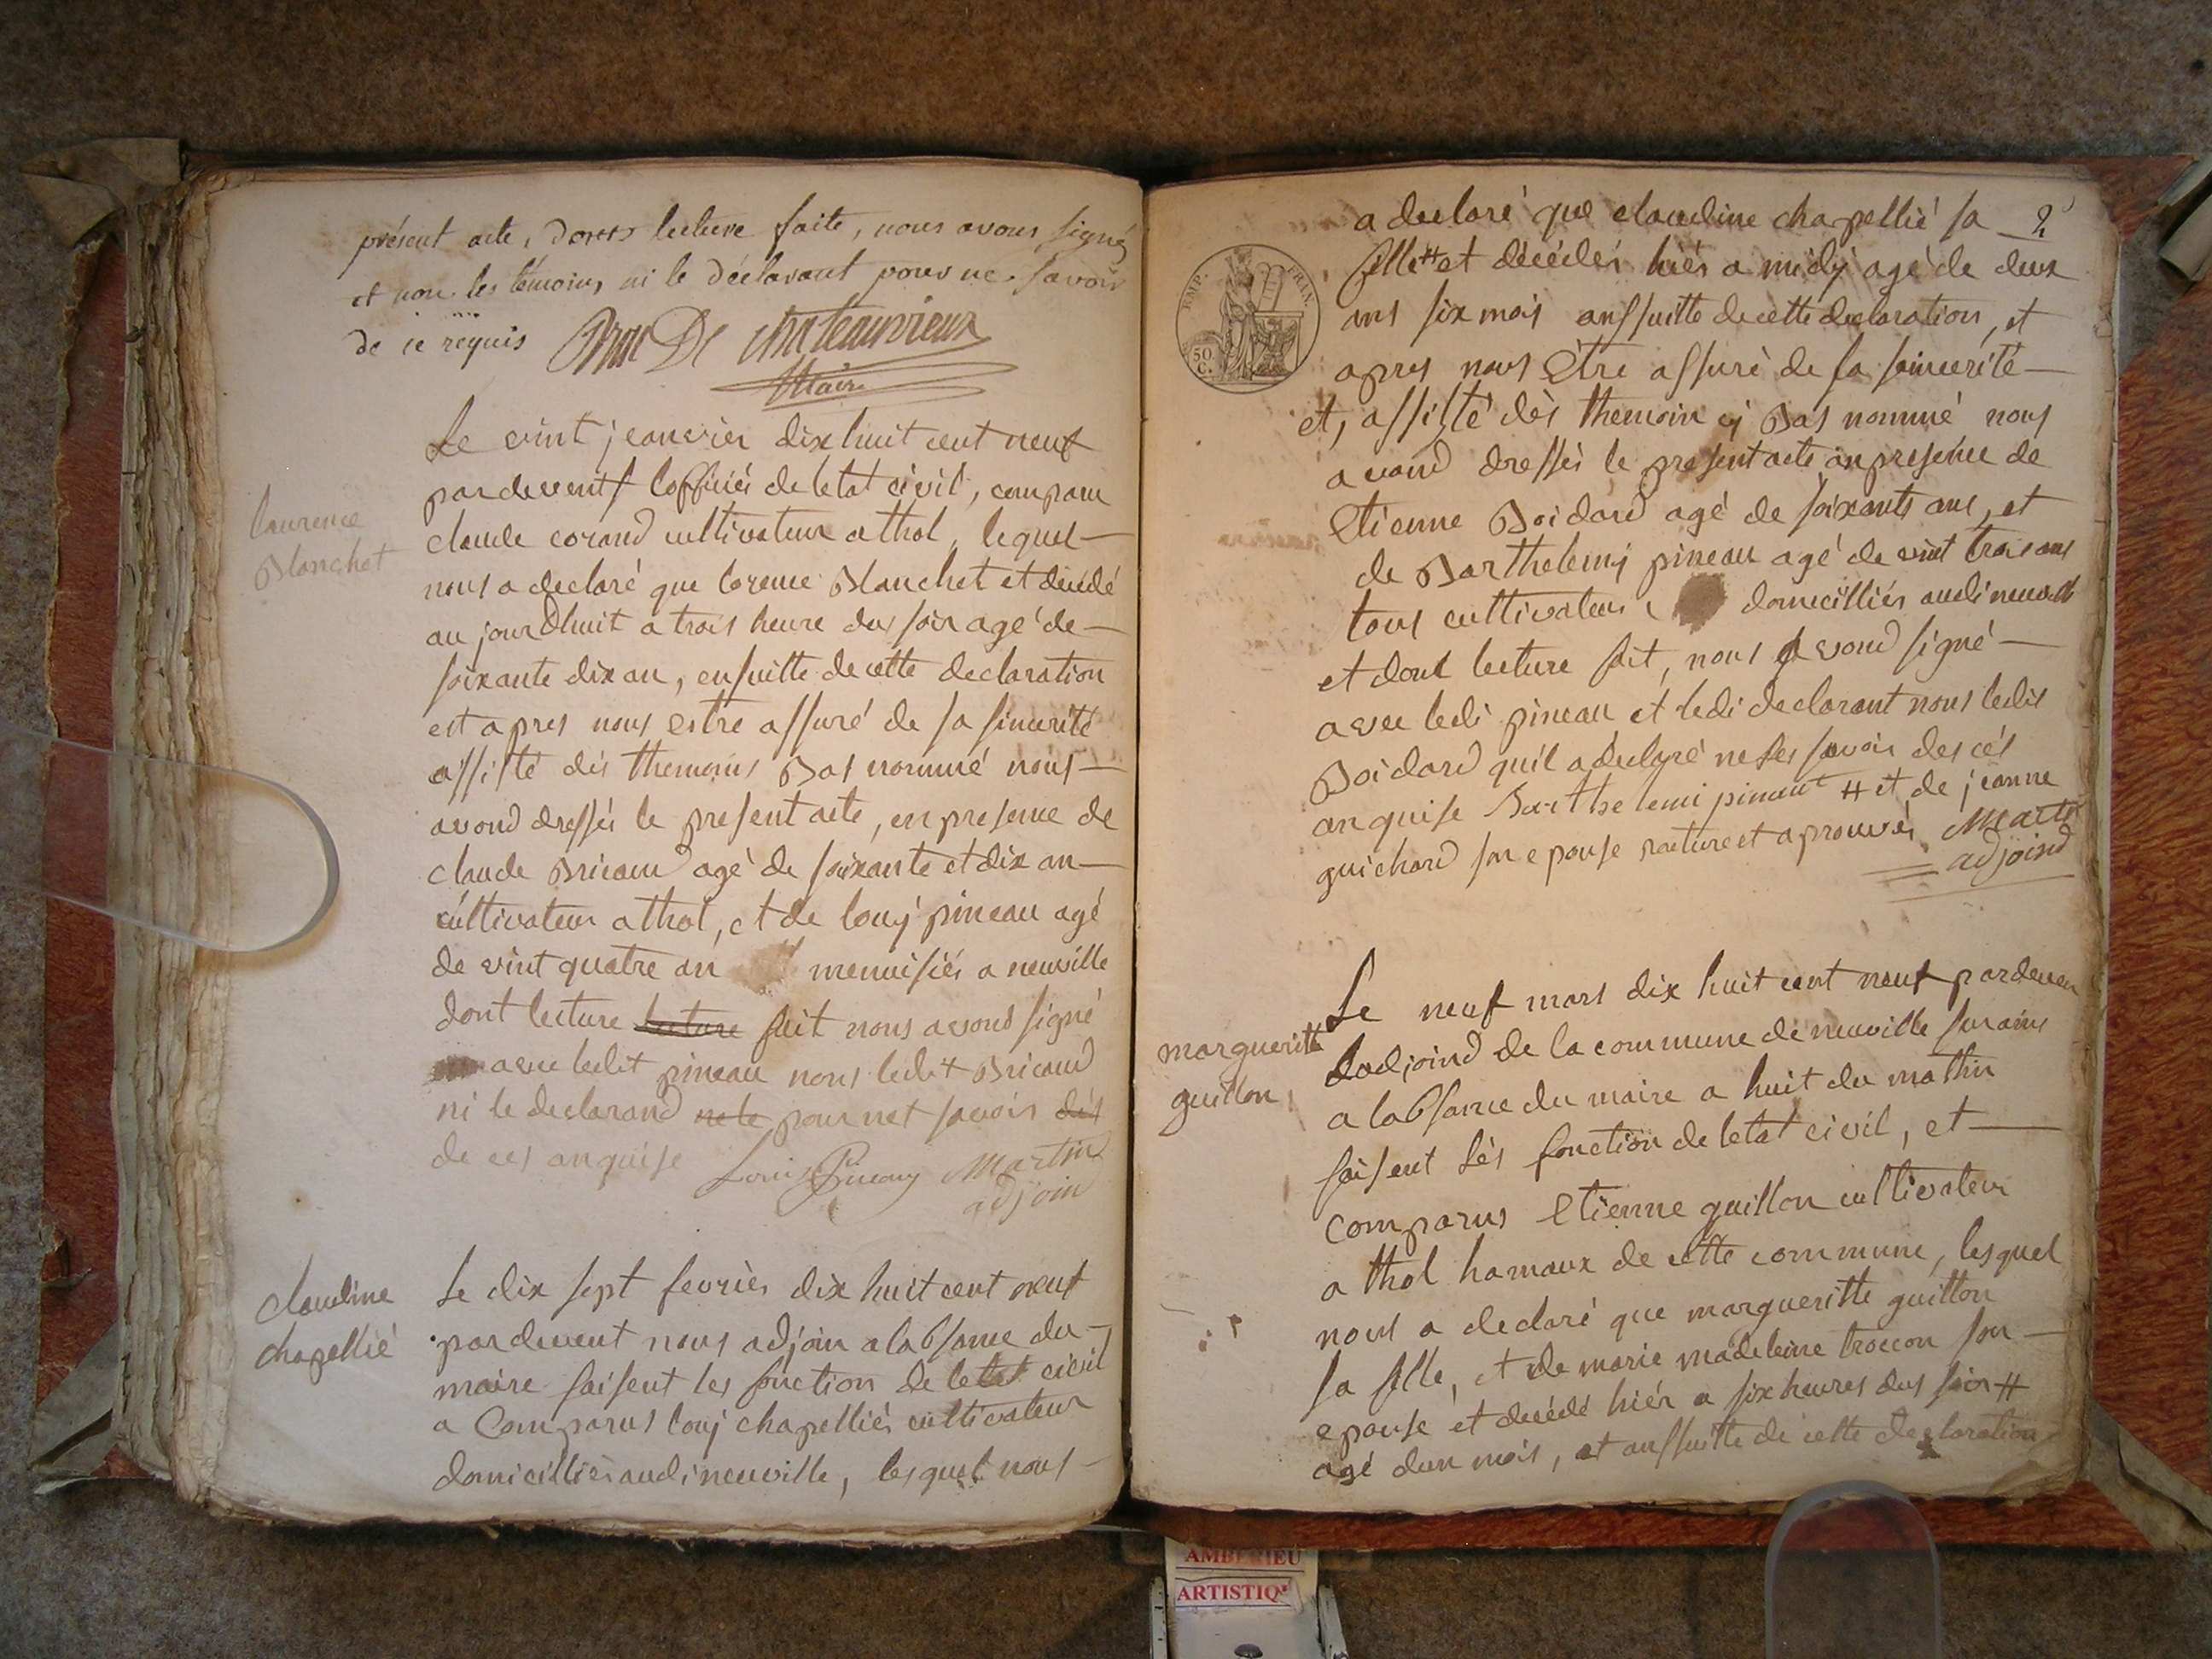 présent acte, dont lecture faite, nous avons signé
et non les témoins, ni le déclarant pour ne savoir
de ce requis De chateauvieux
Maire
Le vint jeanvier dix huit cent neuf
par devent loffiiés de letat civil, comparu
laurence
Blanchet
claude corand cultivateur a thol, lequel
nous a declaré que lorence Blanchet et décédé
au jourdhuit a trois heure dus soir agé de
soixante dix an, ensuitte de cette declaration
est apres nous estre assuré de sa sincerité
assisté dés themoins Bas nommé nous
avond dressés le present acte, en presence de
claude Bricaud agé de soixante et dix an
cultivateur a thol, et de louy pineau agé
de vint quatre an menuisiés a neuville
dont lecture lecture fait nous avond signé
avec ledit pineau nons ledit Bricaud
ni le declarand ne le pour net savoir dés
de ces anquise Louis Pineau Martin
adjoin
claudine
chapellié
Le dix sept fevriér dix huit cent neuf
par devent nous adjoin a labsance du
maire faisent les fonction de letat civil
a Comparus louj chapelliés cultivateur
domicilliés audi neuville, lesquel nous
a declaré que claudine chapellié sa
EMP. FRAN.
50 C.
fille # et décédés hiér a midy agé de deux
ans six mois anssuitte de cette declaration, et
apres nous être assuré de sa saincerité
et, assisté dès themoin cy Bas nommé nous
avond dressés le present acte an presence de
Etienne Boidard agé de soixante ans, et
de Barthelemy pineau agé de vint trois ans
tous cultivateur domicilliés audi neuville
et dont lecture fait, nous avond signé
avec ledi pineau et ledi declarant nons ledit
Boidard qu'il a declaré ne les savoir des cés
anquise Barthelemi pineau # et de jeanne
guichard son epouse rature et aprouvés Martin
adjoind
Le neuf mars dix huit cent neuf par deven
margueritte
guillon
Ladjoind de la commune de neuville sur ains
a labsance du maire a huit du mathin
faisent lés fonction de letat civil, et
comparus Etienne guillon cultivateur
a thol hamaux de cette commune, lesquel
nous a declaré que margueritte guillon
sa fille, et de marie madeleine troccon son
epouse et decédé hiér a six heures dus soir #
agé dun mois, et anssuitte de cette declaration
AMBERIEU
ARTISTIQ